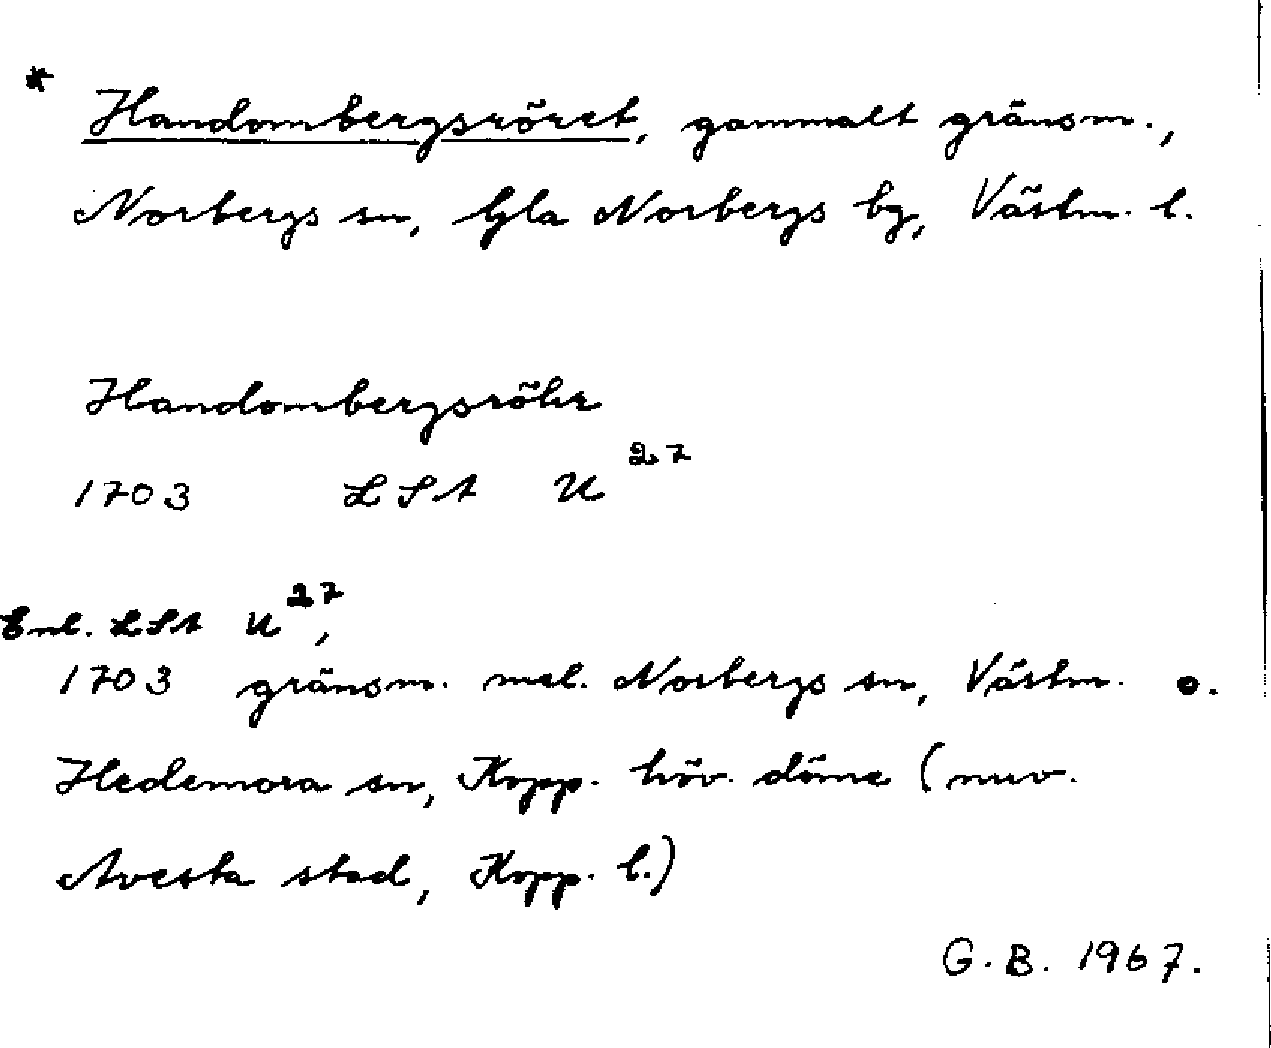 * Handombergsröret, gammalt gränsm.,
Norbergs sn, Gla Norbergs bg, Västm. l.
Handombergsröhr
1703 LSA U²⁷
Enl. LSA U²⁷,
1703 gränsm. mel. Norbergs sn, Västm. o.
Hedemora sn, Kopp. höv. döme (nuv.
Avesta stad, Kopp. l.)
G.B. 1967.